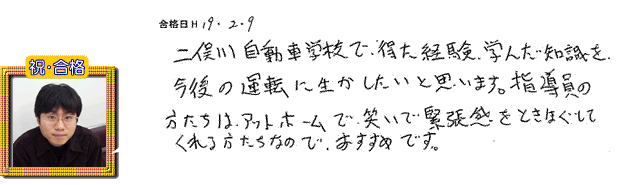 合格日H 19. 2. 9
祝・合格
二俣川自動車学校で、得た経験、学んだ知識を、
今後の運転に生かしたいと思います。指導員の
方たちは、アットホームで、笑いで緊張感をときほぐして
くれる方たちなので、おすすめです。